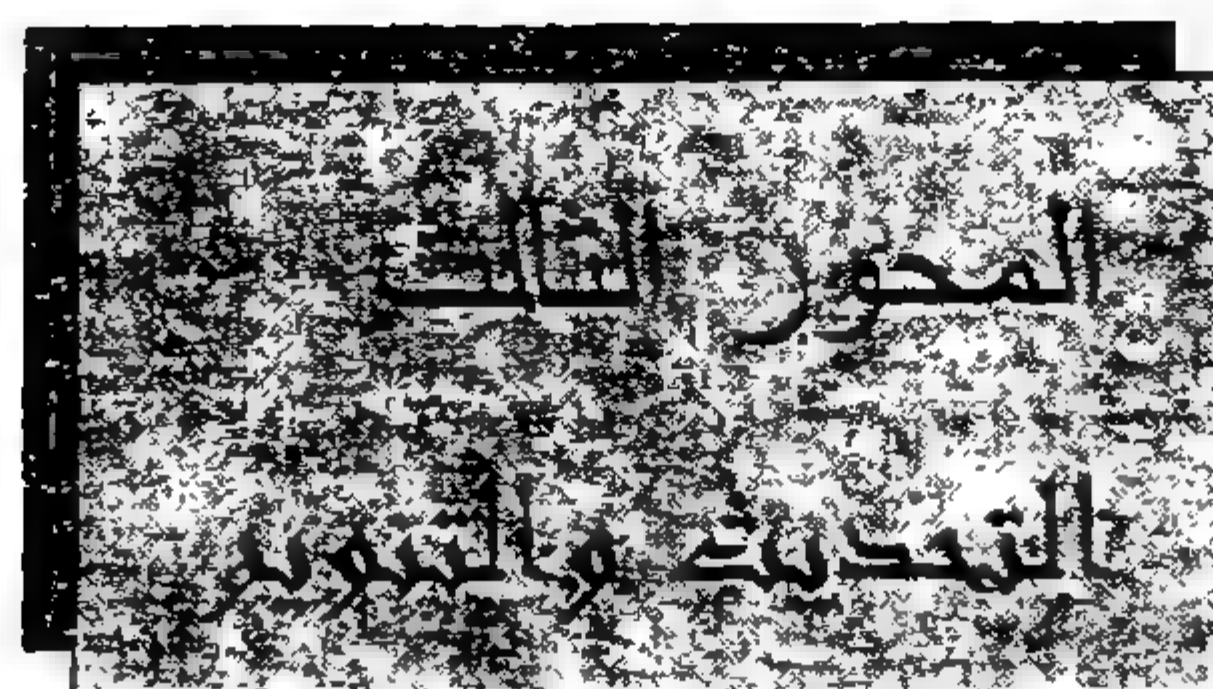 المحور الثالث
التحديث والتنوير